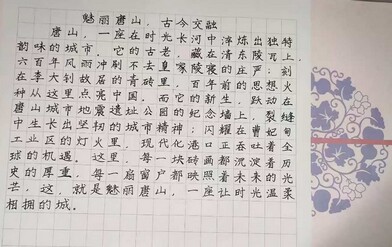 魅丽唐山，古今交融
唐山，一座在时光长河中淬炼出独特
韵味的城市。它的古老，藏在清东陵瓦上
六百年风雨冲刷不去皇家陵寝的庄严；刻
在李大钊故居的青砖里，百年前的思想火
种从这里点亮中国。而它的新生，跃动在
唐山城市地震遗址公园的纪念墙上，裂缝
中生长出坚韧的城市精神；闪耀在曹妃甸
工业区的灯火里，现代化港口正吞吐着全
球的机遇。这里，每一块砖都沉淀着历
史的厚重，每一扇窗户都映照未来的光
芒。这，就是魅丽唐山，一座让时光温柔
相拥的城。